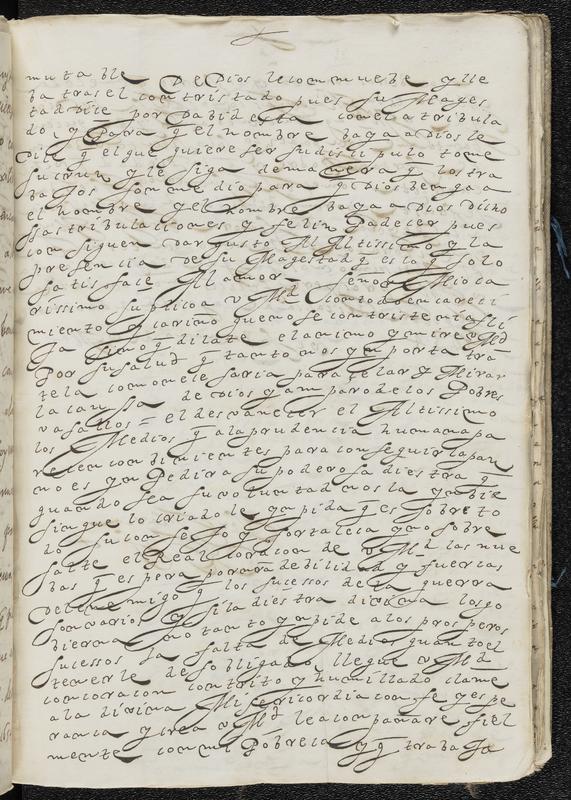 mutable De Dios le conmuebe y lle
ba tras el contristado pues su Mages
tad Dice por Dabid esta con el atribula
do, y Para q el hombre baya a Dios le
Dice q el que quiere ser su discipulo tome
su crus y le siga de manera q los tra
bajos son me dio para q Dios benga a
el hombre y el hombre baya a Dios Dicho
sas tribulaciones y felix Padecer pues
con siguen dar gusto Al Altissimo y la
presencia De su Magestad q es la q solo
satis face Al amor Señor Mio ca
rissimo suplico a v Md con todo encareci
miento y cariño que no se contriste ni afli
Ja sino q dilate el animo y mire v Md
Por su salud q tanto nos ym porta tra
tela como ne cesaria para celar y Mirar
la causa de Dios y am paro de los Pobres
vasallos = el desvanecer el Altissimo
los Medios q a la prudencia humana pa
recen conbinientes para conseguir la pax
no es ynpedir a su poderosa diestra q
quando sea su voluntad nos la ynbie
sin que lo criado le ynpida q es sobre to
do su con sejo y fortaleça y no sobre
salte el Real coraçon de v Md las nue
bas q es pera por mas debilidad y fuerças
Del enemigo q los sucessos de la guerra
son varios y si la diestra divina los go
bierna no tanto ynpide a los prosperos
sucessos la falta de Medios quanto el
tenerle desobligado llegue v Md
con coraçon contrito y humillado clame
a la divina Misericordia con fe y espe
rança y crea v Md le acompañare fiel
mente con mi Pobreça y q trabaja